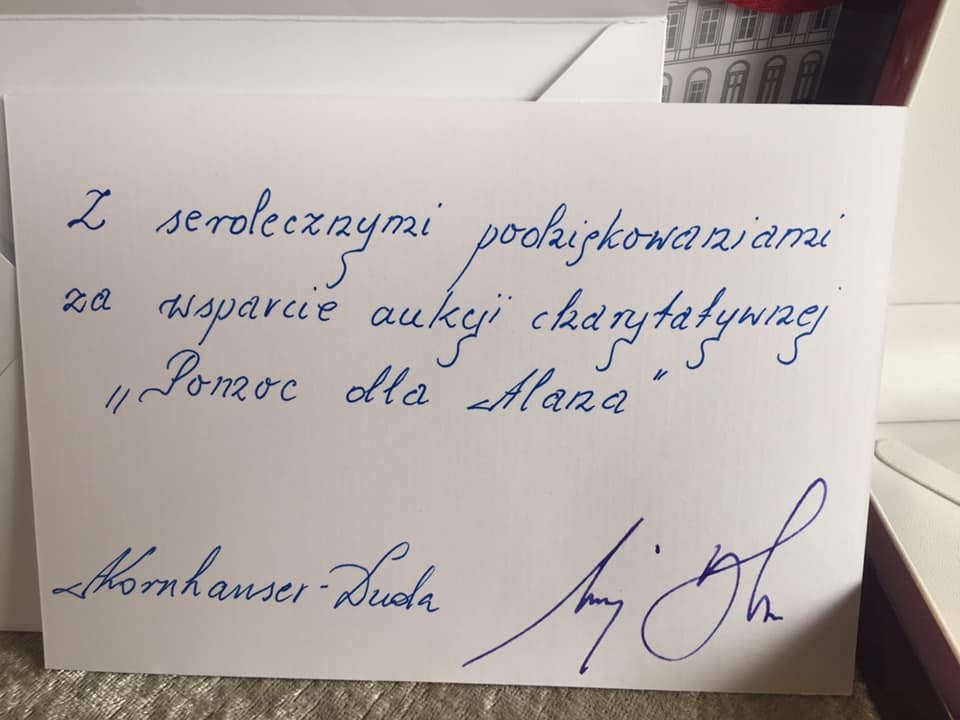 Z serdecznymi podziękowaniami
za wsparcie aukcji charytatywnej
„Pomoc dla Alana”
AKornhauser-Duda